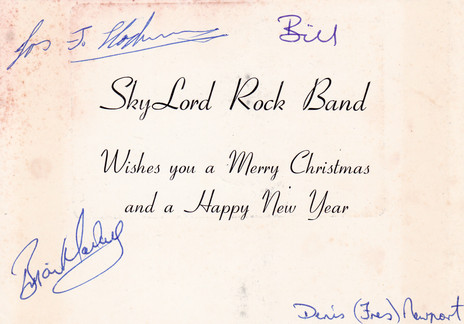 Jos J.
Bill
SkyLord Rock Band
Wishes you a Merry Christmas
and a Happy New Year
Brian
Denis (Fres) Newport